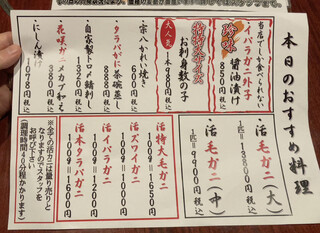 本日のおすすめ料理
当店でしか食べれない
イバラガニ外子
醤油漬け
1本850円税込
大人気
お刺身数の子
1本980円税込
・宗八かれい焼き
600円税込
・タラバガニ茶碗蒸し
988円税込
・自家製トロ〆鯖刺し
1320円税込
・花咲ガニメカブ和え
380円税込
・にしん漬け
1078円税込
・活毛ガニ(大)
1匹=13800円税込
・活毛ガニ(中)
1匹=9100円税込
活特大毛ガニ
100g=1650円
活ズワイガニ
100g=1100円
活イバラガニ
100g=1200円
活本タラバガニ
100g=1600円
※全ての活カニは量り売りと
なりますのでスタッフを
お呼び下さい
(調理時間40分程かかります)